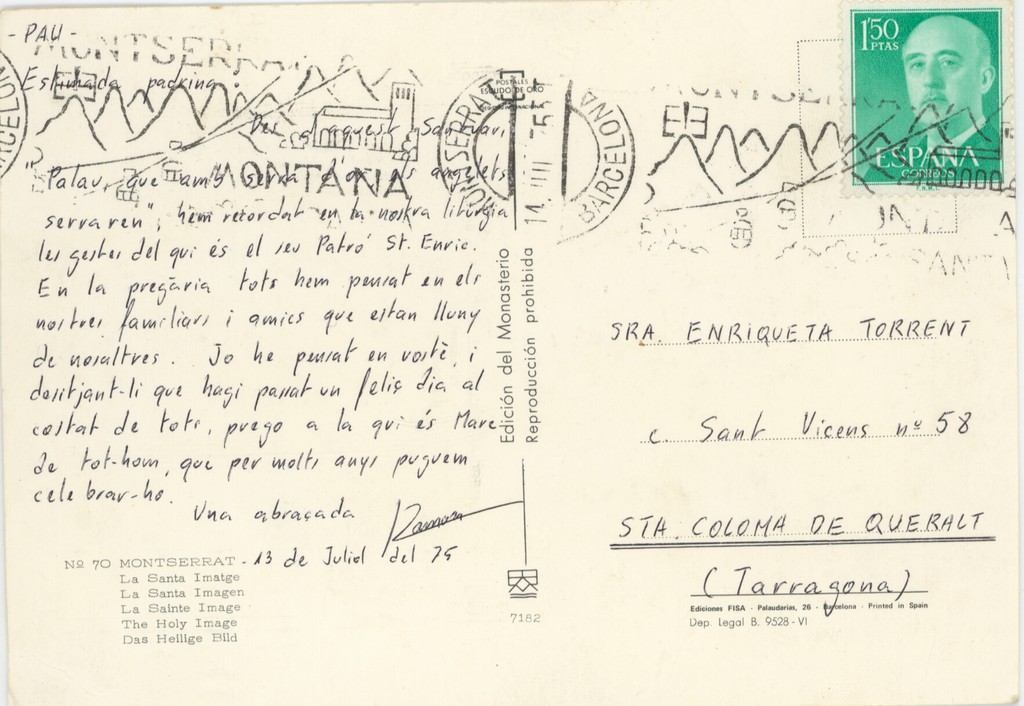 - PAU -
Estimada padrina:
Des d'aquest Santuari
"Palau, que amb serra d'or els angelets
serraren", hem recordat en la nostra litúrgia
les gestes del qui és el seu Patró St. Enric.
En la pregària tots hem pensat en els
nostres familiars i amics que estan lluny
de nosaltres. Jo he pensat en vostè, i
desitjant-li que hagi passat un feliç dia al
costat de tots, prego a la qui és Mare
de tot-hom, que per molts anys puguem
celebrar-ho.
Una abraçada Ramon
Nº 70 MONTSERRAT - 13 de Juliol del 75
La Santa Imatge
La Santa Imagen
La Sainte Image
The Holy Image
Das Heilige Bild
MONTSERRAT
MONTAÑA
BARCELONA
POSTALES
ESCUDO DE ORO
MONTSERRAT
BARCELONA
14 VII 75
Edición del Monasterio
Reproducción prohibida
7182
1'50
PTAS
ESPAÑA
CORREOS
SRA. ENRIQUETA TORRENT
c. Sant Vicens nº 58
STA. COLOMA DE QUERALT
(Tarragona)
Ediciones FISA - Palaudarias, 26 - Barcelona - Printed in Spain
Dep. Legal B. 9528 - VI